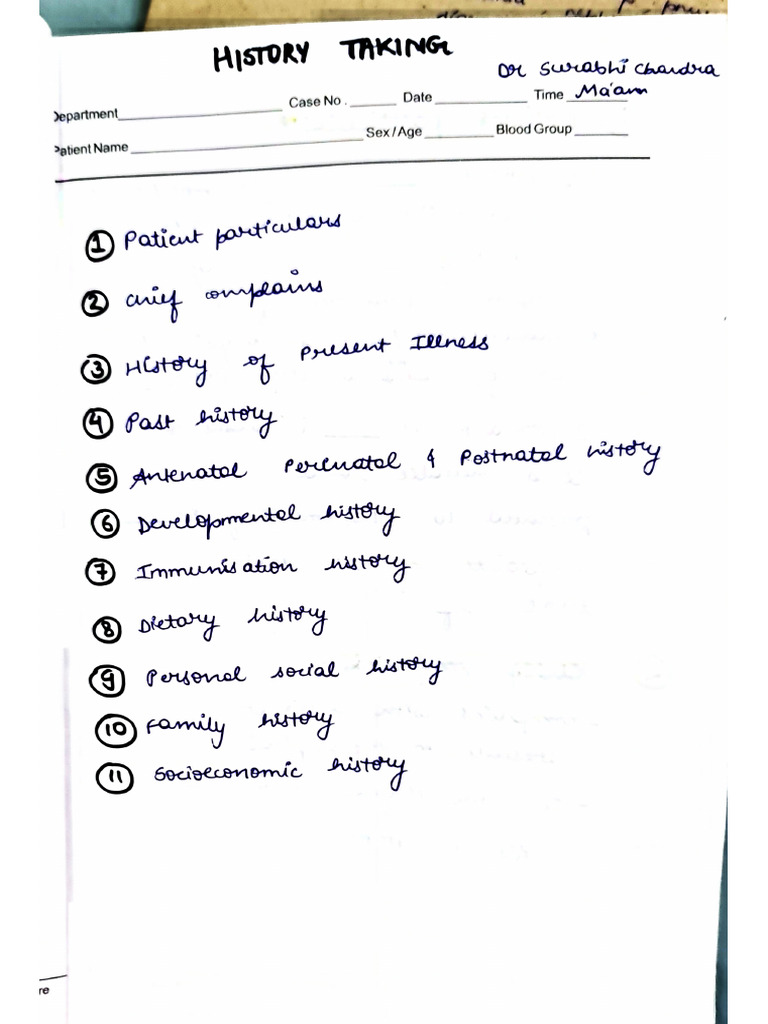 HISTORY TAKING
Dr Surabhi Chandra
Department Case No. Date Time Ma'am
Patient Name Sex / Age Blood Group
1 Patient particulars
2 Chief complains
3 History of Present Illness
4 Past history
5 Antenatal Perinatal & Postnatal history
6 Developmental history
7 Immunisation history
8 Dietary history
9 Personal social history
10 Family history
11 Socioeconomic history
re